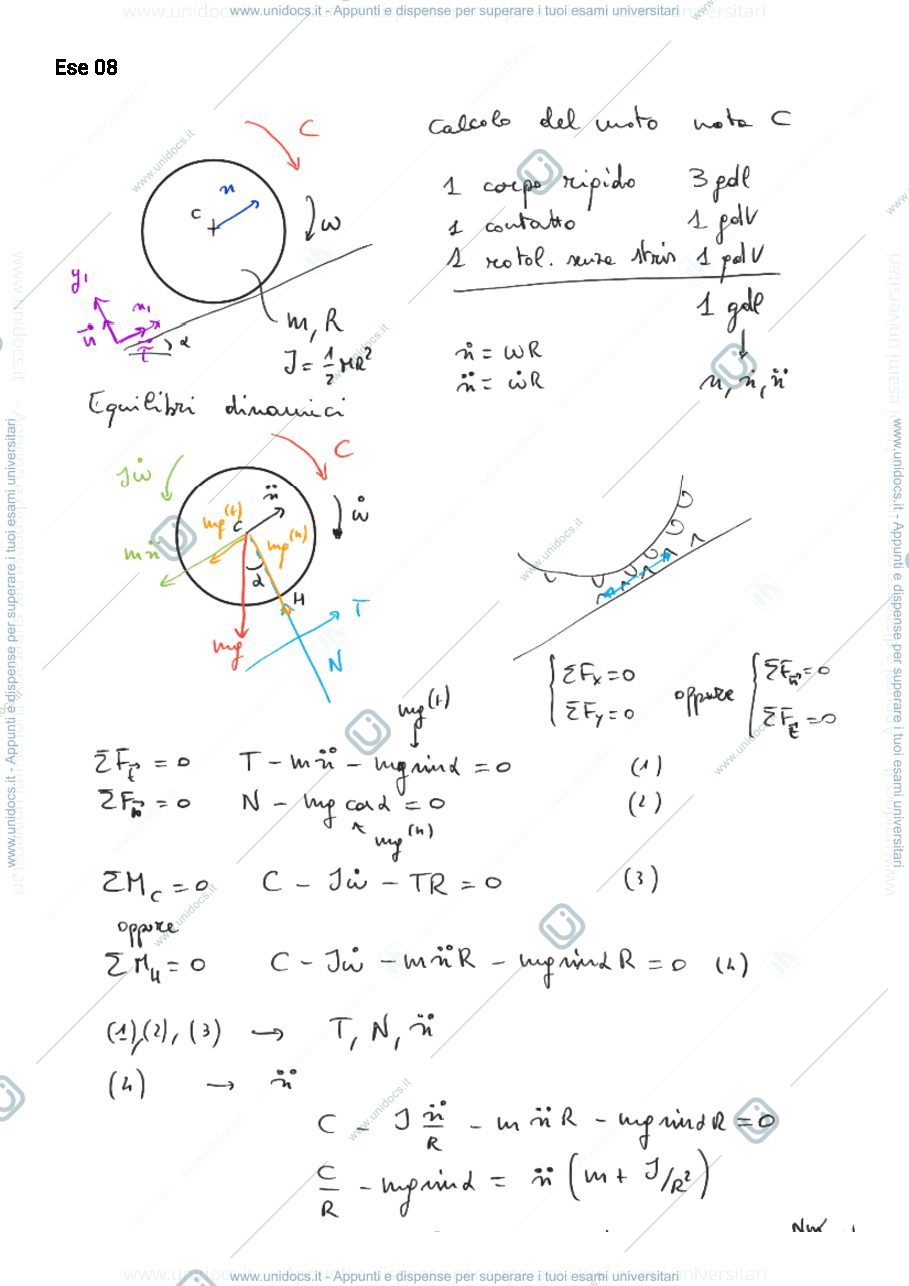 www.unidocs.it - Appunti e dispense per superare i tuoi esami universitari
Ese 08
C
Calcolo del moto nota C
1 corpo rigido 3 gdl
1 contatto 1 gdV
1 rotol. senza stris 1 gdV
1 gdl
x
C
ω
y₁
x₁
n⃗
t⃗
α
m, R
J = 1/2 MR²
ẋ = ωR
ẍ = ω̇R
x, ẋ, ẍ
Equilibri dinamici
C
Jω̇
ẍ
ω̇
mg⁽ᵗ⁾
C
mg⁽ⁿ⁾
mẍ
α
H
T
mg
N
{ ΣFx = 0
ΣFy = 0
oppure
{ ΣFn⃗ = 0
ΣFt⃗ = 0
mg⁽ᵗ⁾
ΣFt⃗ = 0 T - mẍ - mg sin α = 0 (1)
ΣFn⃗ = 0 N - mg cos α = 0 (2)
mg⁽ⁿ⁾
ΣMC = 0 C - Jω̇ - TR = 0 (3)
oppure
ΣMH = 0 C - Jω̇ - mẍR - mg sin α R = 0 (4)
(1),(2),(3) → T, N, ẍ
(4) → ẍ
C - J ẍ/R - mẍR - mg sin α R = 0
C/R - mg sin α = ẍ (m + J/R²)
www.unidocs.it - Appunti e dispense per superare i tuoi esami universitari